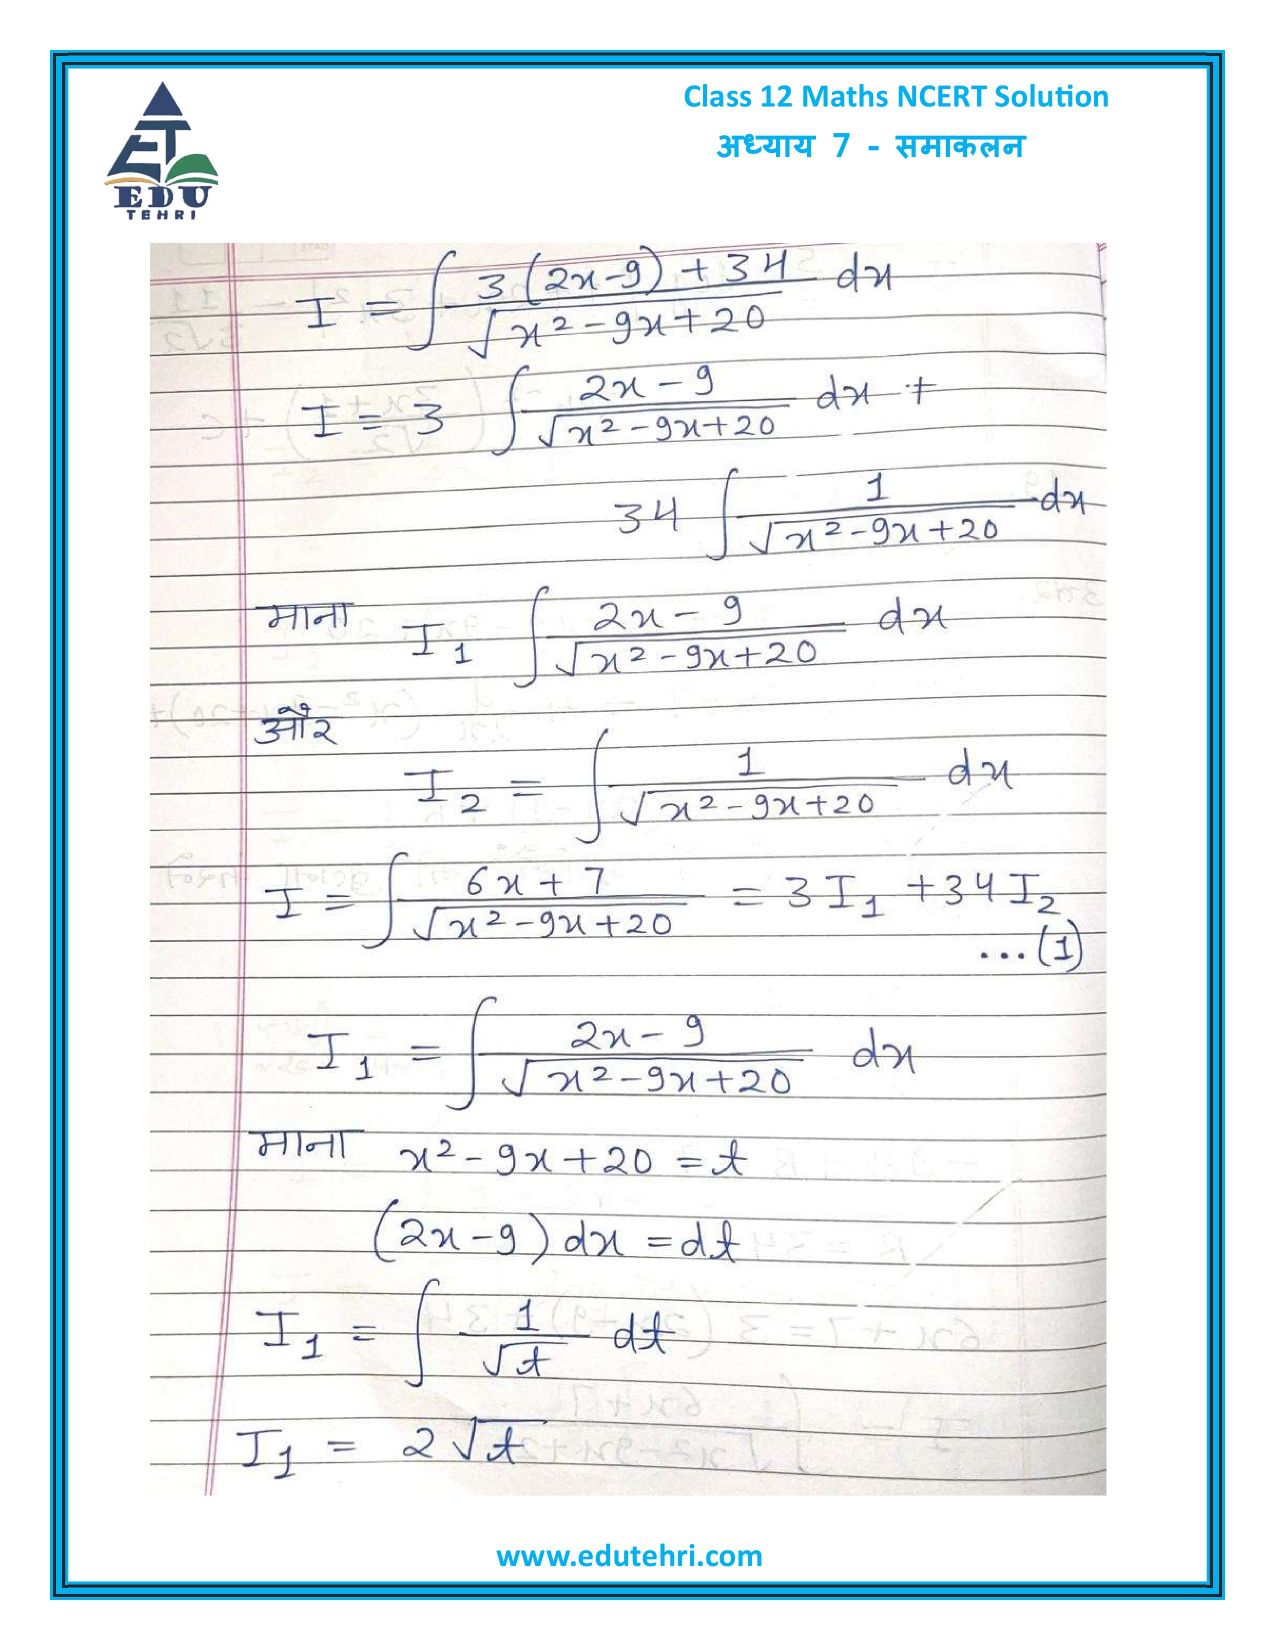 Class 12 Maths NCERT Solution
अध्याय 7 - समाकलन
EDU
TEHRI
I = ∫ 3(2x-9)+34 / √(x²-9x+20) dx
I = 3 ∫ 2x-9 / √(x²-9x+20) dx +
34 ∫ 1 / √(x²-9x+20) dx
माना I₁ ∫ 2x-9 / √(x²-9x+20) dx
और
I₂ = ∫ 1 / √(x²-9x+20) dx
I = ∫ 6x+7 / √(x²-9x+20) = 3I₁ +34I₂
...(1)
I₁ = ∫ 2x-9 / √(x²-9x+20) dx
माना x²-9x+20 = t
(2x-9) dx = dt
I₁ = ∫ 1 / √t dt
I₁ = 2√t
www.edutehri.com